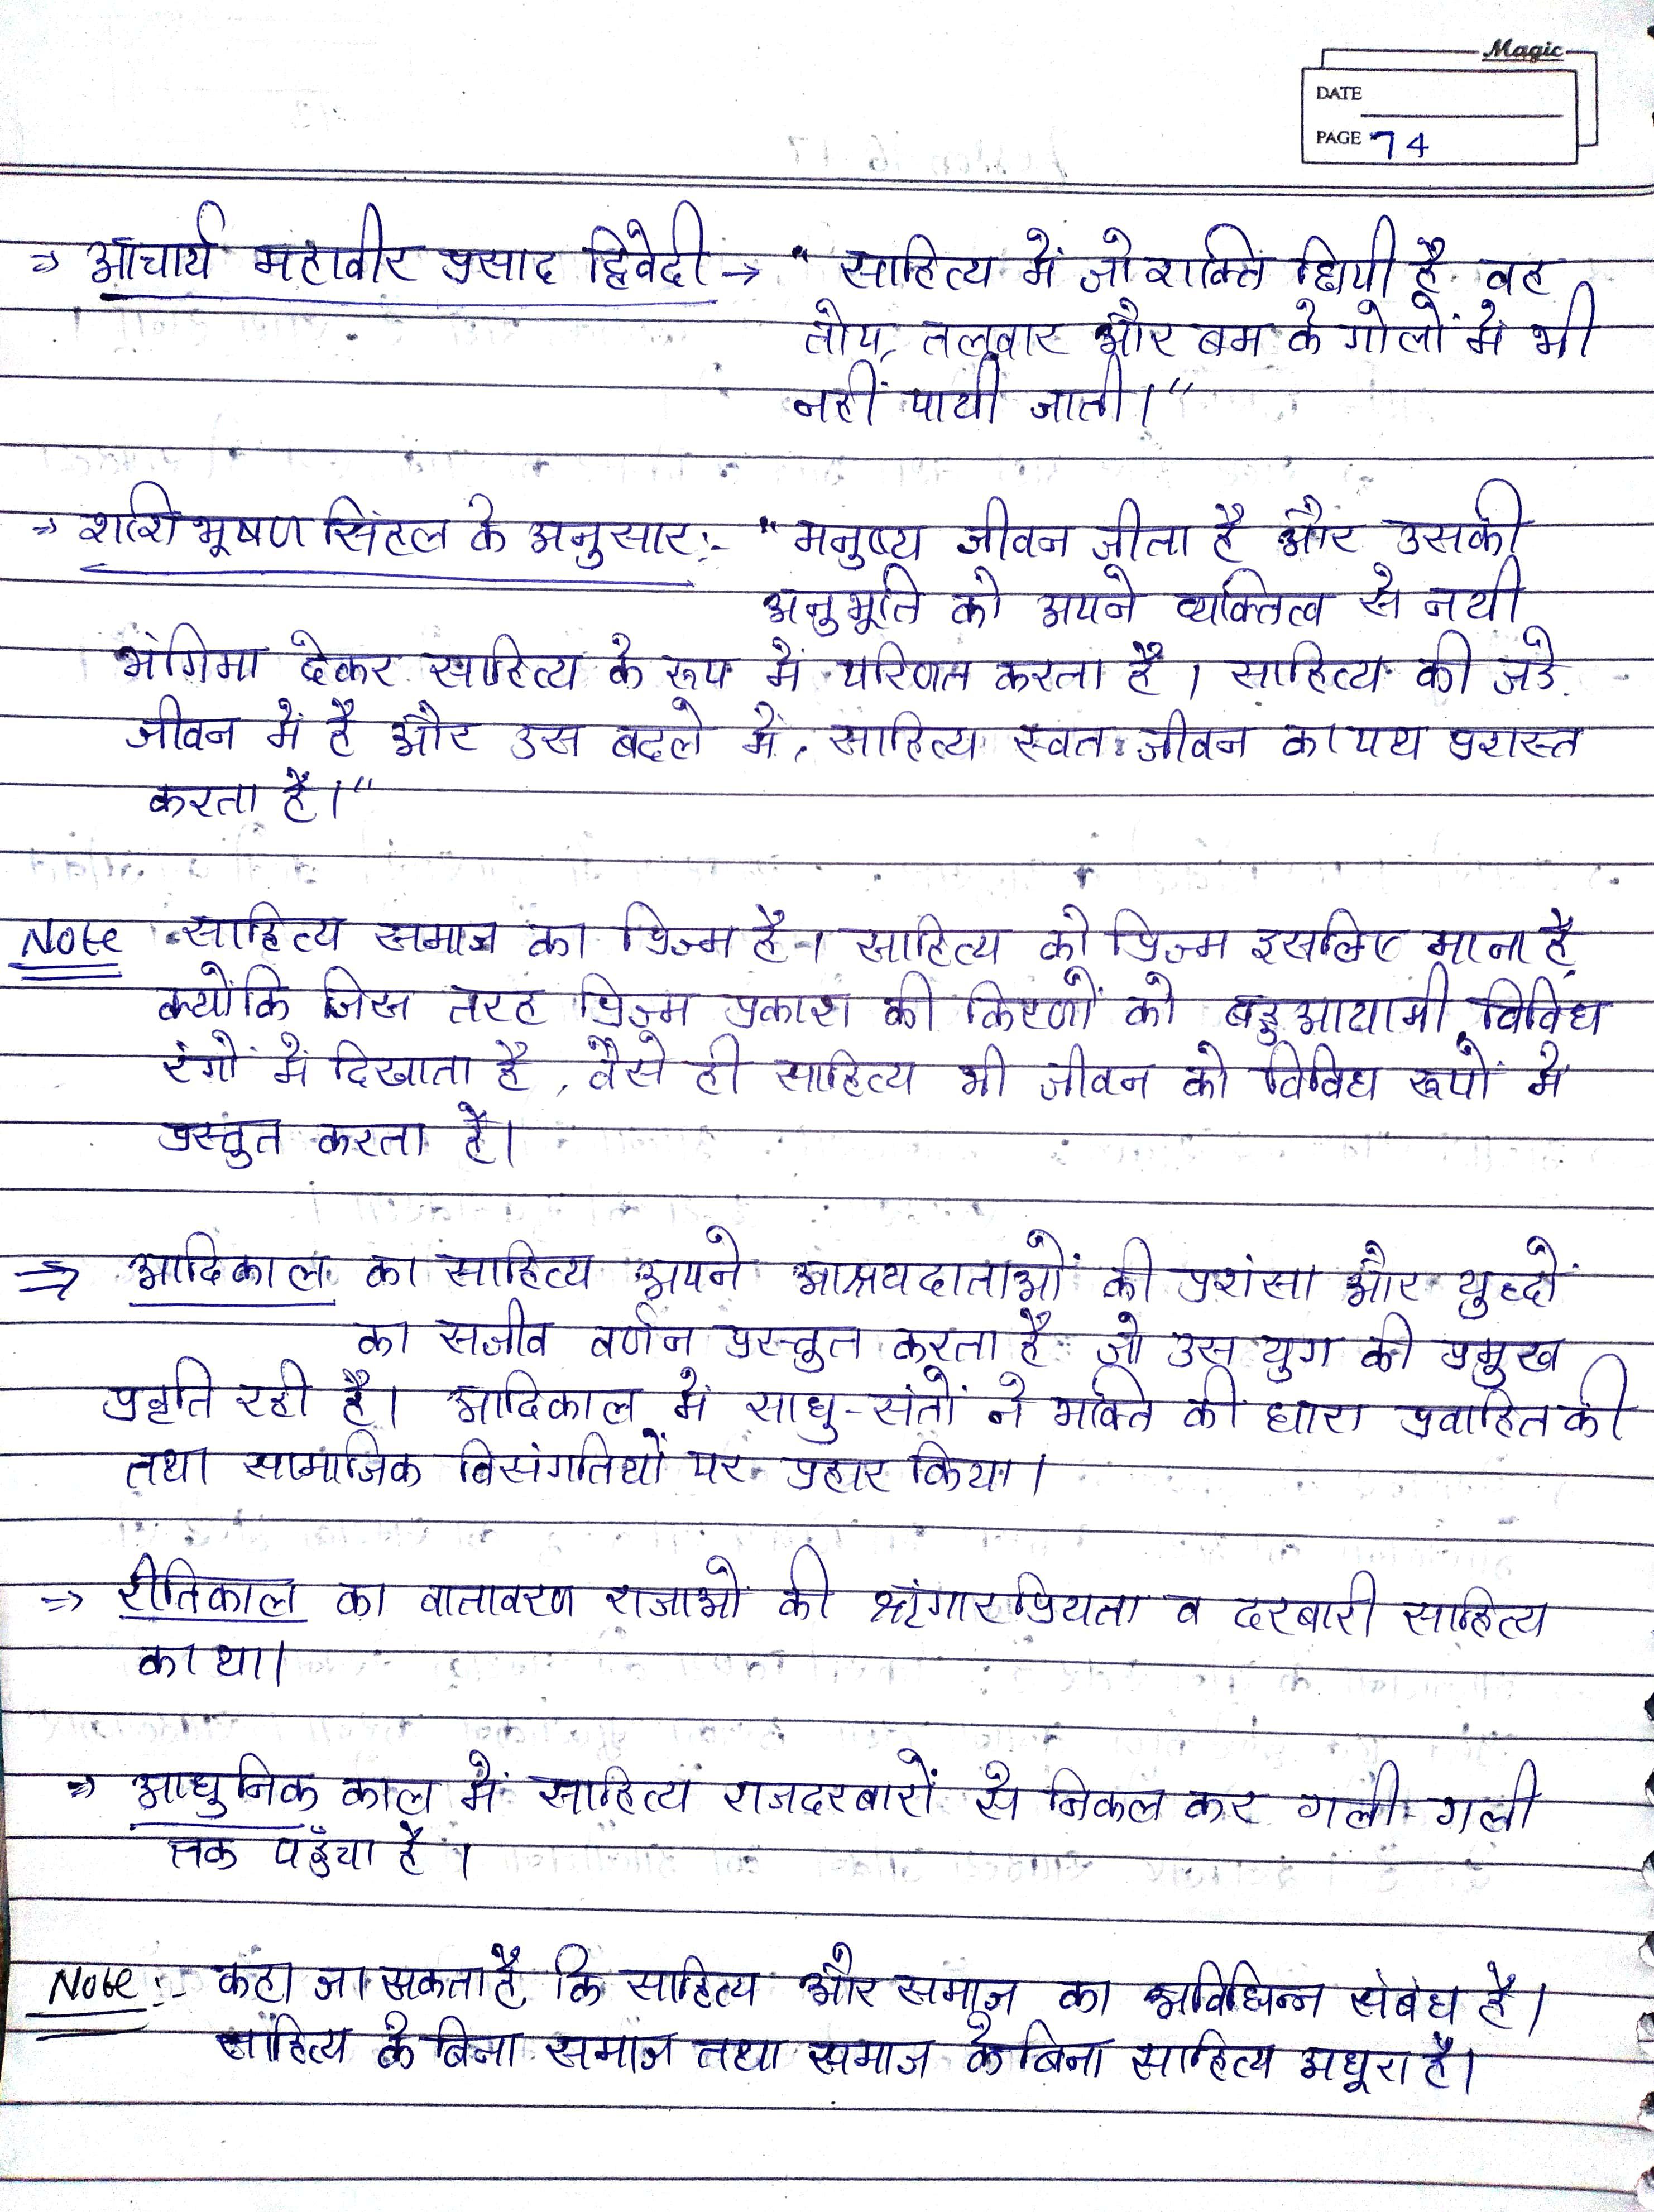 Magic
DATE
PAGE 74
⇒ आचार्य महावीर प्रसाद द्विवेदी → "साहित्य में जो शक्ति छिपी है वह
तोप, तलवार और बम के गोलों में भी
नहीं पायी जाती।"
⇒ शशि भूषण सिंहल के अनुसार:- "मनुष्य जीवन जीता है और उसकी
अनुभूति को अपने व्यक्तित्व से नयी
भंगिमा देकर साहित्य के रूप में परिणत करता है। साहित्य की जड़े
जीवन में है और उस बदले में, साहित्य स्वतः जीवन का पथ प्रशस्त
करता है।"
Note साहित्य समाज का प्रिज्म है। साहित्य को प्रिज्म इसलिए माना है,
क्योंकि जिस तरह प्रिज्म प्रकाश की किरणों को बहुआयामी, विविध
रंगों में दिखाता है, वैसे ही साहित्य भी जीवन को विविध रूपों में
प्रस्तुत करता है।
⇒ आदिकाल का साहित्य अपने आश्रयदाताओं की प्रशंसा और युद्धों
का सजीव वर्णन प्रस्तुत करता है जो उस युग की प्रमुख
प्रवृति रही है। आदिकाल में साधु-संतों ने भक्ति की धारा प्रवाहित की
तथा सामाजिक विसंगतियों पर प्रहार किया।
⇒ रीतिकाल का वातावरण राजाओ की श्रृंगारप्रियता व दरबारी साहित्य
का था।
⇒ आधुनिक काल में साहित्य राजदरबारों से निकल कर गली गली
तक पहुँचा है।
Note:- कहा जा सकता है कि साहित्य और समाज का अविछिन्न संबंध है।
साहित्य के बिना समाज तथा समाज के बिना साहित्य अधूरा है।